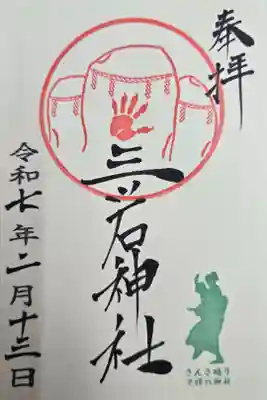 奉拝
三ツ石神社
令和七年二月十三日
さんさ踊り